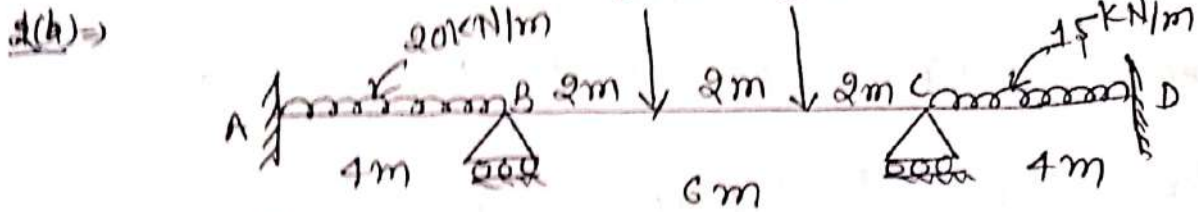 2(b)⇒
20KN/m
15KN/m
A B 2m 2m 2m C D
4m 6m 4m